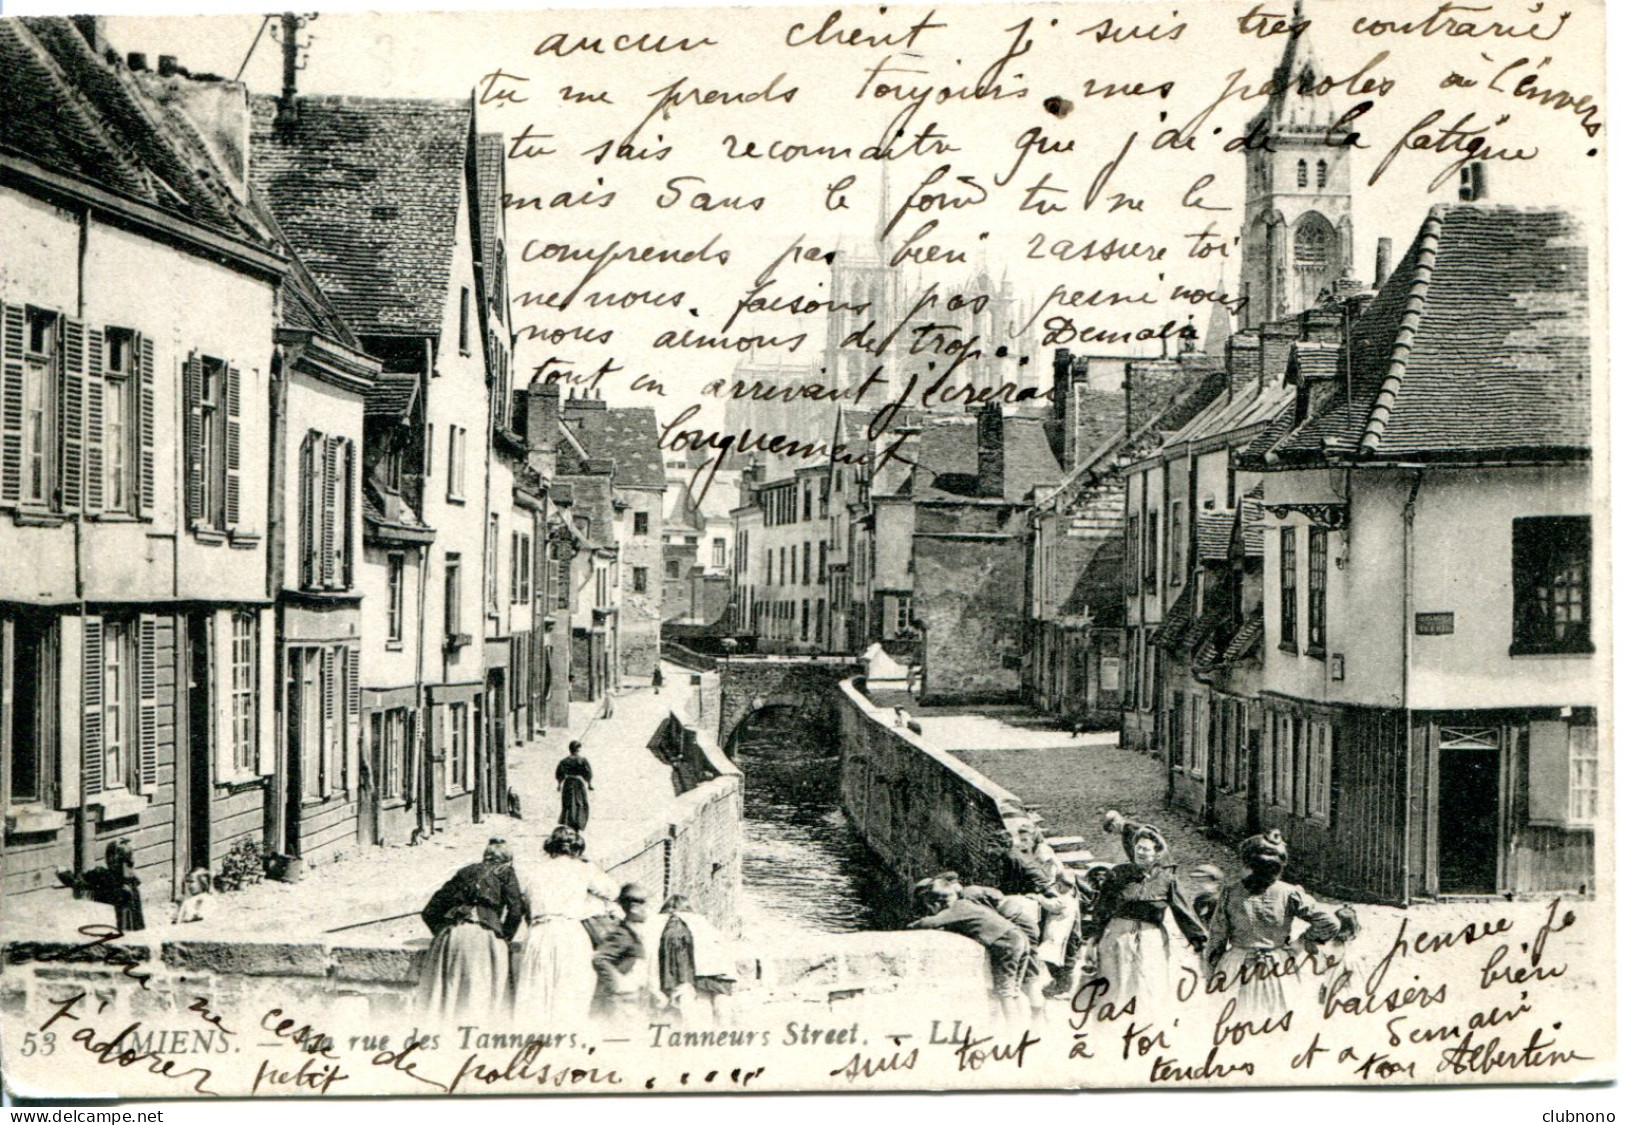 aucun client je suis très contrarié
tu me prends toujours mes paroles à l'envers.
tu sais reconnaitre que j'ai de la fatigue
mais sans le tu ne le
comprends pas bien rassure toi
ne nous faisons pas peine nous
nous aimons de trop. Demain
tout en arrivant j'ecrerai
longuement
Pas d'arrière pensée je
suis tout à toi bons baisers bien
tendres et a demain
ton Albertine
qui ne cesse de
t'adorer petit polisson......
53 AMIENS. — La rue des Tanneurs. — Tanneurs Street. — LL.
clubnono